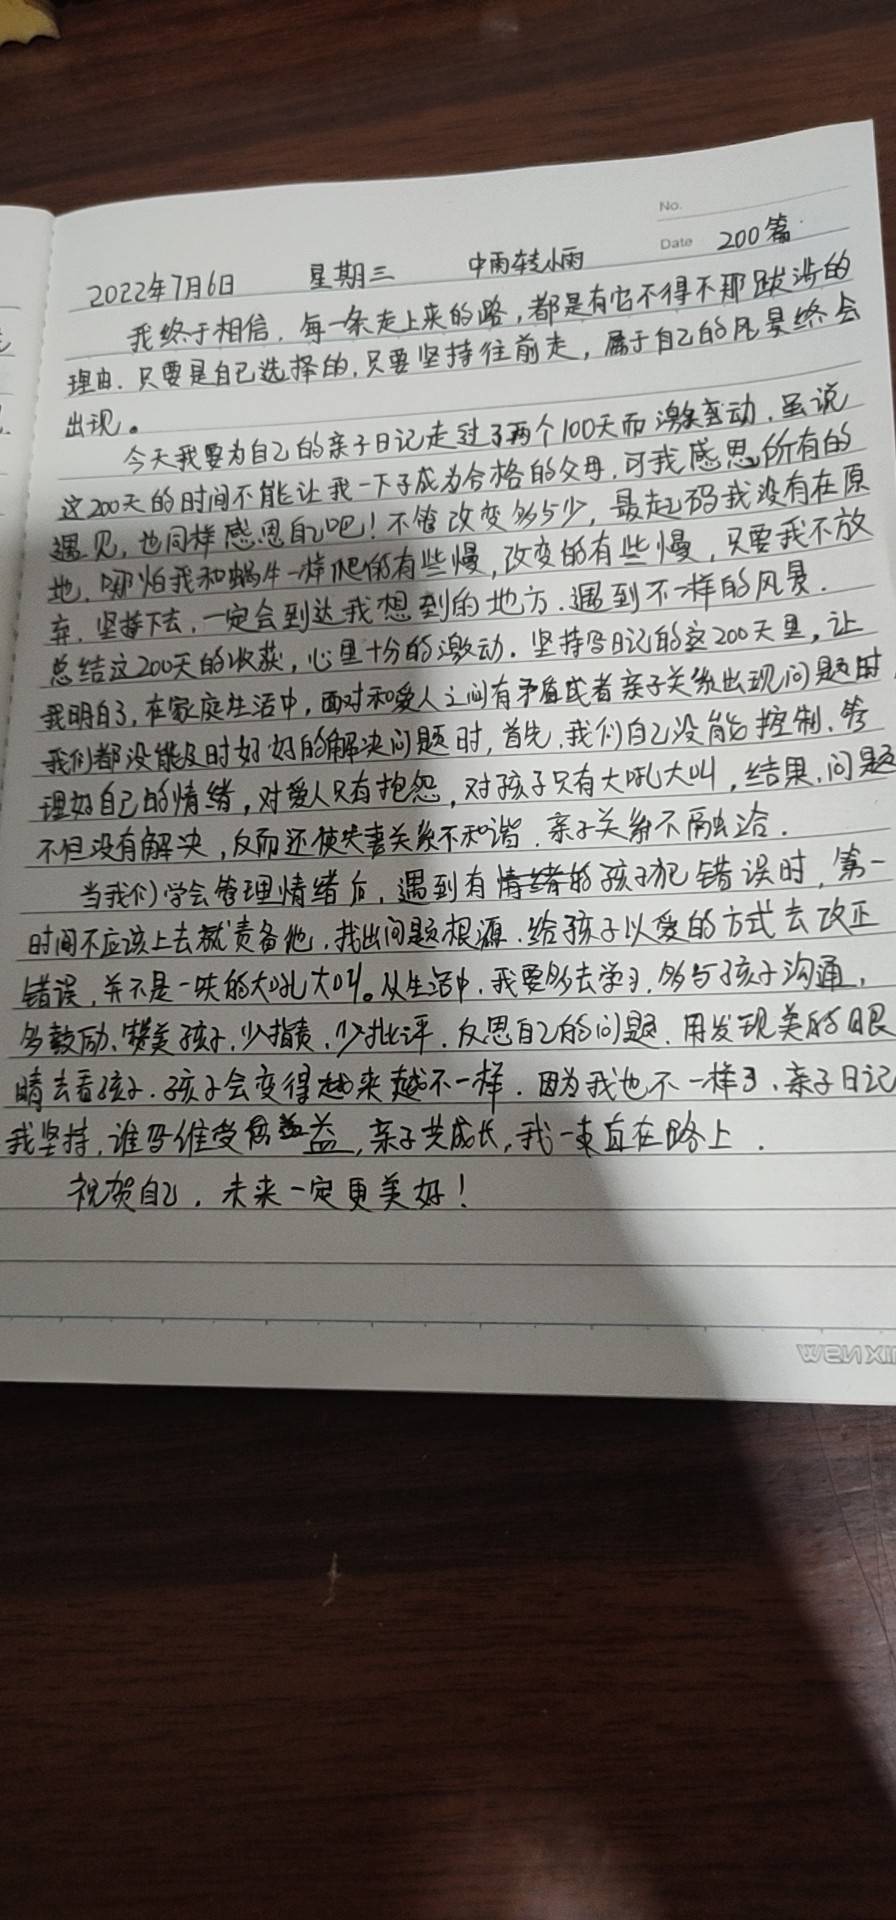 No.
Date 200篇
2022年7月6日 星期三 中雨转小雨
我终于相信，每一条走上来的路，都是有它不得不那跋涉的
理由．只要是自己选择的，只要坚持往前走，属于自己的风景终会
出现。
今天我要为自己的亲子日记走过了两个100天而激动．虽说
这200天的时间不能让我一下子成为合格的父母，可我感恩所有的
遇见，也同样感恩自己吧！不管改变多与少，最起码我没有在原
地，哪怕我和蜗牛一样爬的有些慢，改变的有些慢，只要我不放
弃，坚持下去，一定会到达我想到的地方．遇到不一样的风景．
总结这200天的收获，心里十分的激动．坚持写日记的这200天里，让
我明白了，在家庭生活中，面对和爱人之间有矛盾或者亲子关系出现问题时
我们都没能及时好好的解决问题时，首先，我们自己没能控制．管
理好自己的情绪，对爱人只有抱怨，对孩子只有大吼大叫，结果，问题
不但没有解决，反而还使夫妻关系不和谐．亲子关系不融洽．
当我们学会管理情绪后，遇到有情绪的孩子犯错误时，第一
时间不应该上去就责备他，找出问题根源．给孩子以爱的方式去改正
错误，并不是一味的大吼大叫。从生活中，我要多去学习，多与孩子沟通，
多鼓励、赞美孩子，少指责，少批评．反思自己的问题．用发现美的眼
睛去看孩子．孩子会变得越来越不一样．因为我也不一样了、亲子日记
我坚持，谁写谁受益，亲子共成长，我一直在路上．
祝贺自己，未来一定更美好！
WENXIN